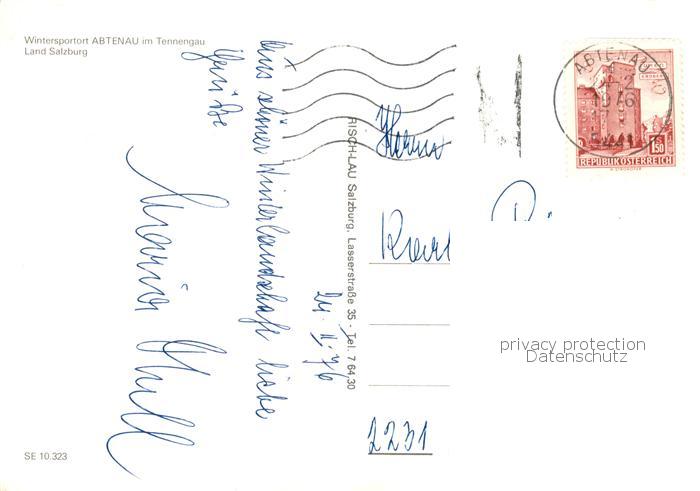 Wintersportort ABTENAU im Tennengau
Land Salzburg
Aus schöner Winterlandschaft liebe
Grüße
RISCH-LAU Salzburg, Lasserstraße 35 - Tel. 7 64 30
II. 76
Herrn
Karl
2231
ABTENAU
1976
5441
1.50
REPUBLIK ÖSTERREICH
privacy protection
Datenschutz
SE 10.323